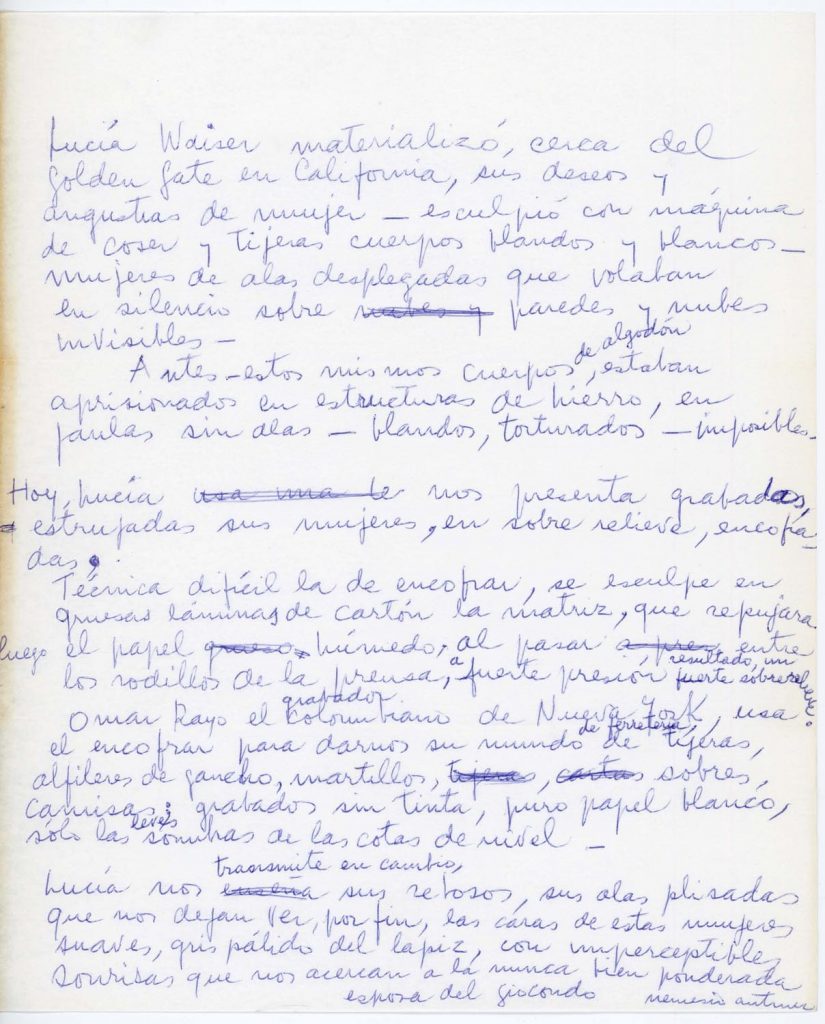 Lucía Waiser materializó, cerca del
Golden Gate en California, sus deseos y
angustias de mujer – esculpió con máquina
de coser y tijeras cuerpos blandos y blancos –
mujeres de alas desplegadas que volaban
en silencio sobre nubes y paredes y nubes
invisibles –
de algodón
Antes – estos mismos cuerpos, estaban
aprisionados en estructuras de hierro, en
jaulas sin alas – blandos, torturados – imposibles –
Hoy, Lucía usa una te nos presenta grabadas,
estrujadas sus mujeres, en sobre relieve, encofra
das,
Técnica difícil la de encofrar, se esculpe en
gruesas láminas de cartón la matriz, que repujara
luego el papel grueso húmedo, al pasar a pres entre
los rodillos de la prensa, a fuerte presión, resultado, un
fuerte sobre relieve.
grabador
Omar Rayo el colombiano de Nueva York, usa
de ferretería,
el encofrar para darnos su mundo de tijeras,
alfileres de gancho, martillos, tijeras, cartas sobres,
camisas; grabados sin tinta, puro papel blanco,
leves
sólo las sombras de las cotas de nivel –
transmite en cambio,
Lucía nos enseña sus rebosos, sus alas plisadas
que nos dejan ver, por fin, las caras de estas mujeres
suaves, gris pálido del lapiz, con imperceptibles
sonrisas que nos acercan a la nunca bien ponderada
esposa del giocondo
nemesio antunez